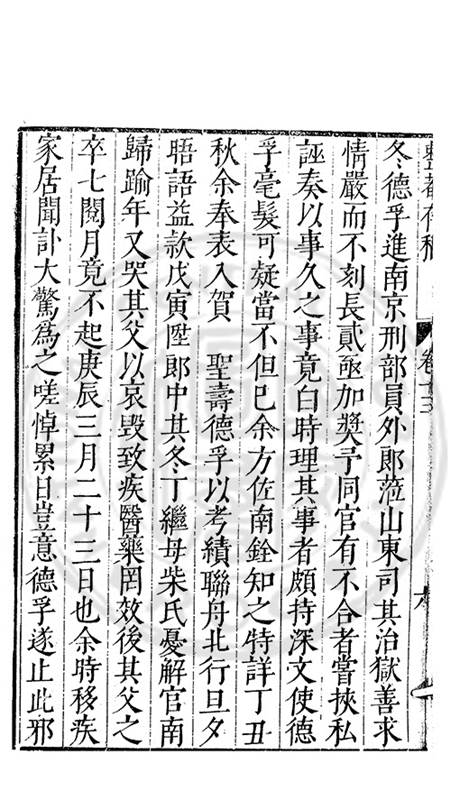 冬德孚進南京刑部員外郎蒞山東司其治獄善求
情嚴而不刻長貳亟加奬予同官有不合者嘗挾私
誣奏以事久之事竟白時理其事者頗持深文使德
孚毫髮可疑當不但已余方佐南銓知之特詳丁丑
秋余奉表入賀　聖壽德孚以考績聯舟北行旦夕
晤語益款戊寅陞郎中其冬丁繼母柴氏憂解官南
歸踰年又哭其父以哀毀致疾醫藥罔效後其父之
卒七閱月竟不起庚辰三月二十三日也余時移疾
家居聞訃大驚為之嗟悼累日豈意德孚遂止此邪